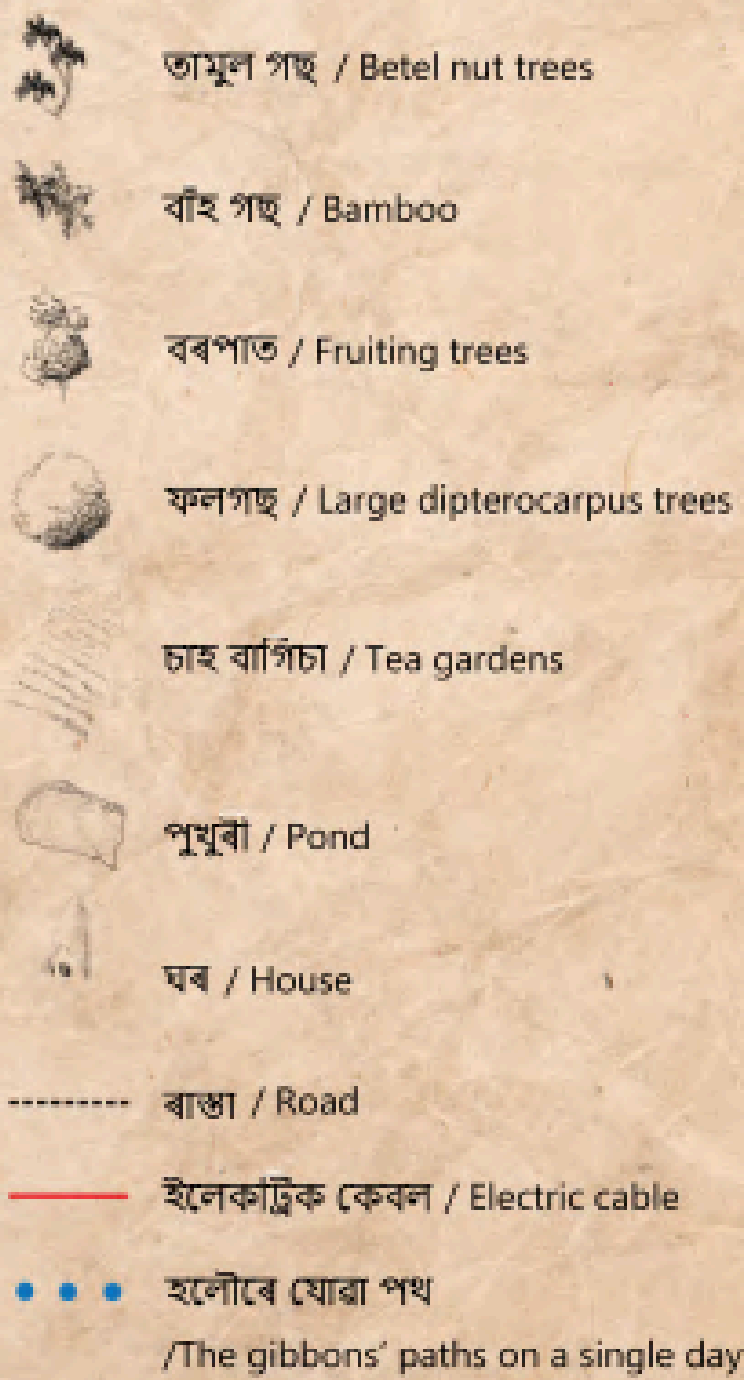 তামুল গছ / Betel nut trees
বাঁহ গছ / Bamboo
বৰপাত / Fruiting trees
ফলগছ / Large dipterocarpus trees
চাহ বাগিচা / Tea gardens
পুখুৰী / Pond
ঘৰ / House
ৰাস্তা / Road
ইলেকট্ৰিক কেবল / Electric cable
হলৌৰে যোৱা পথ
/The gibbons’ paths on a single day